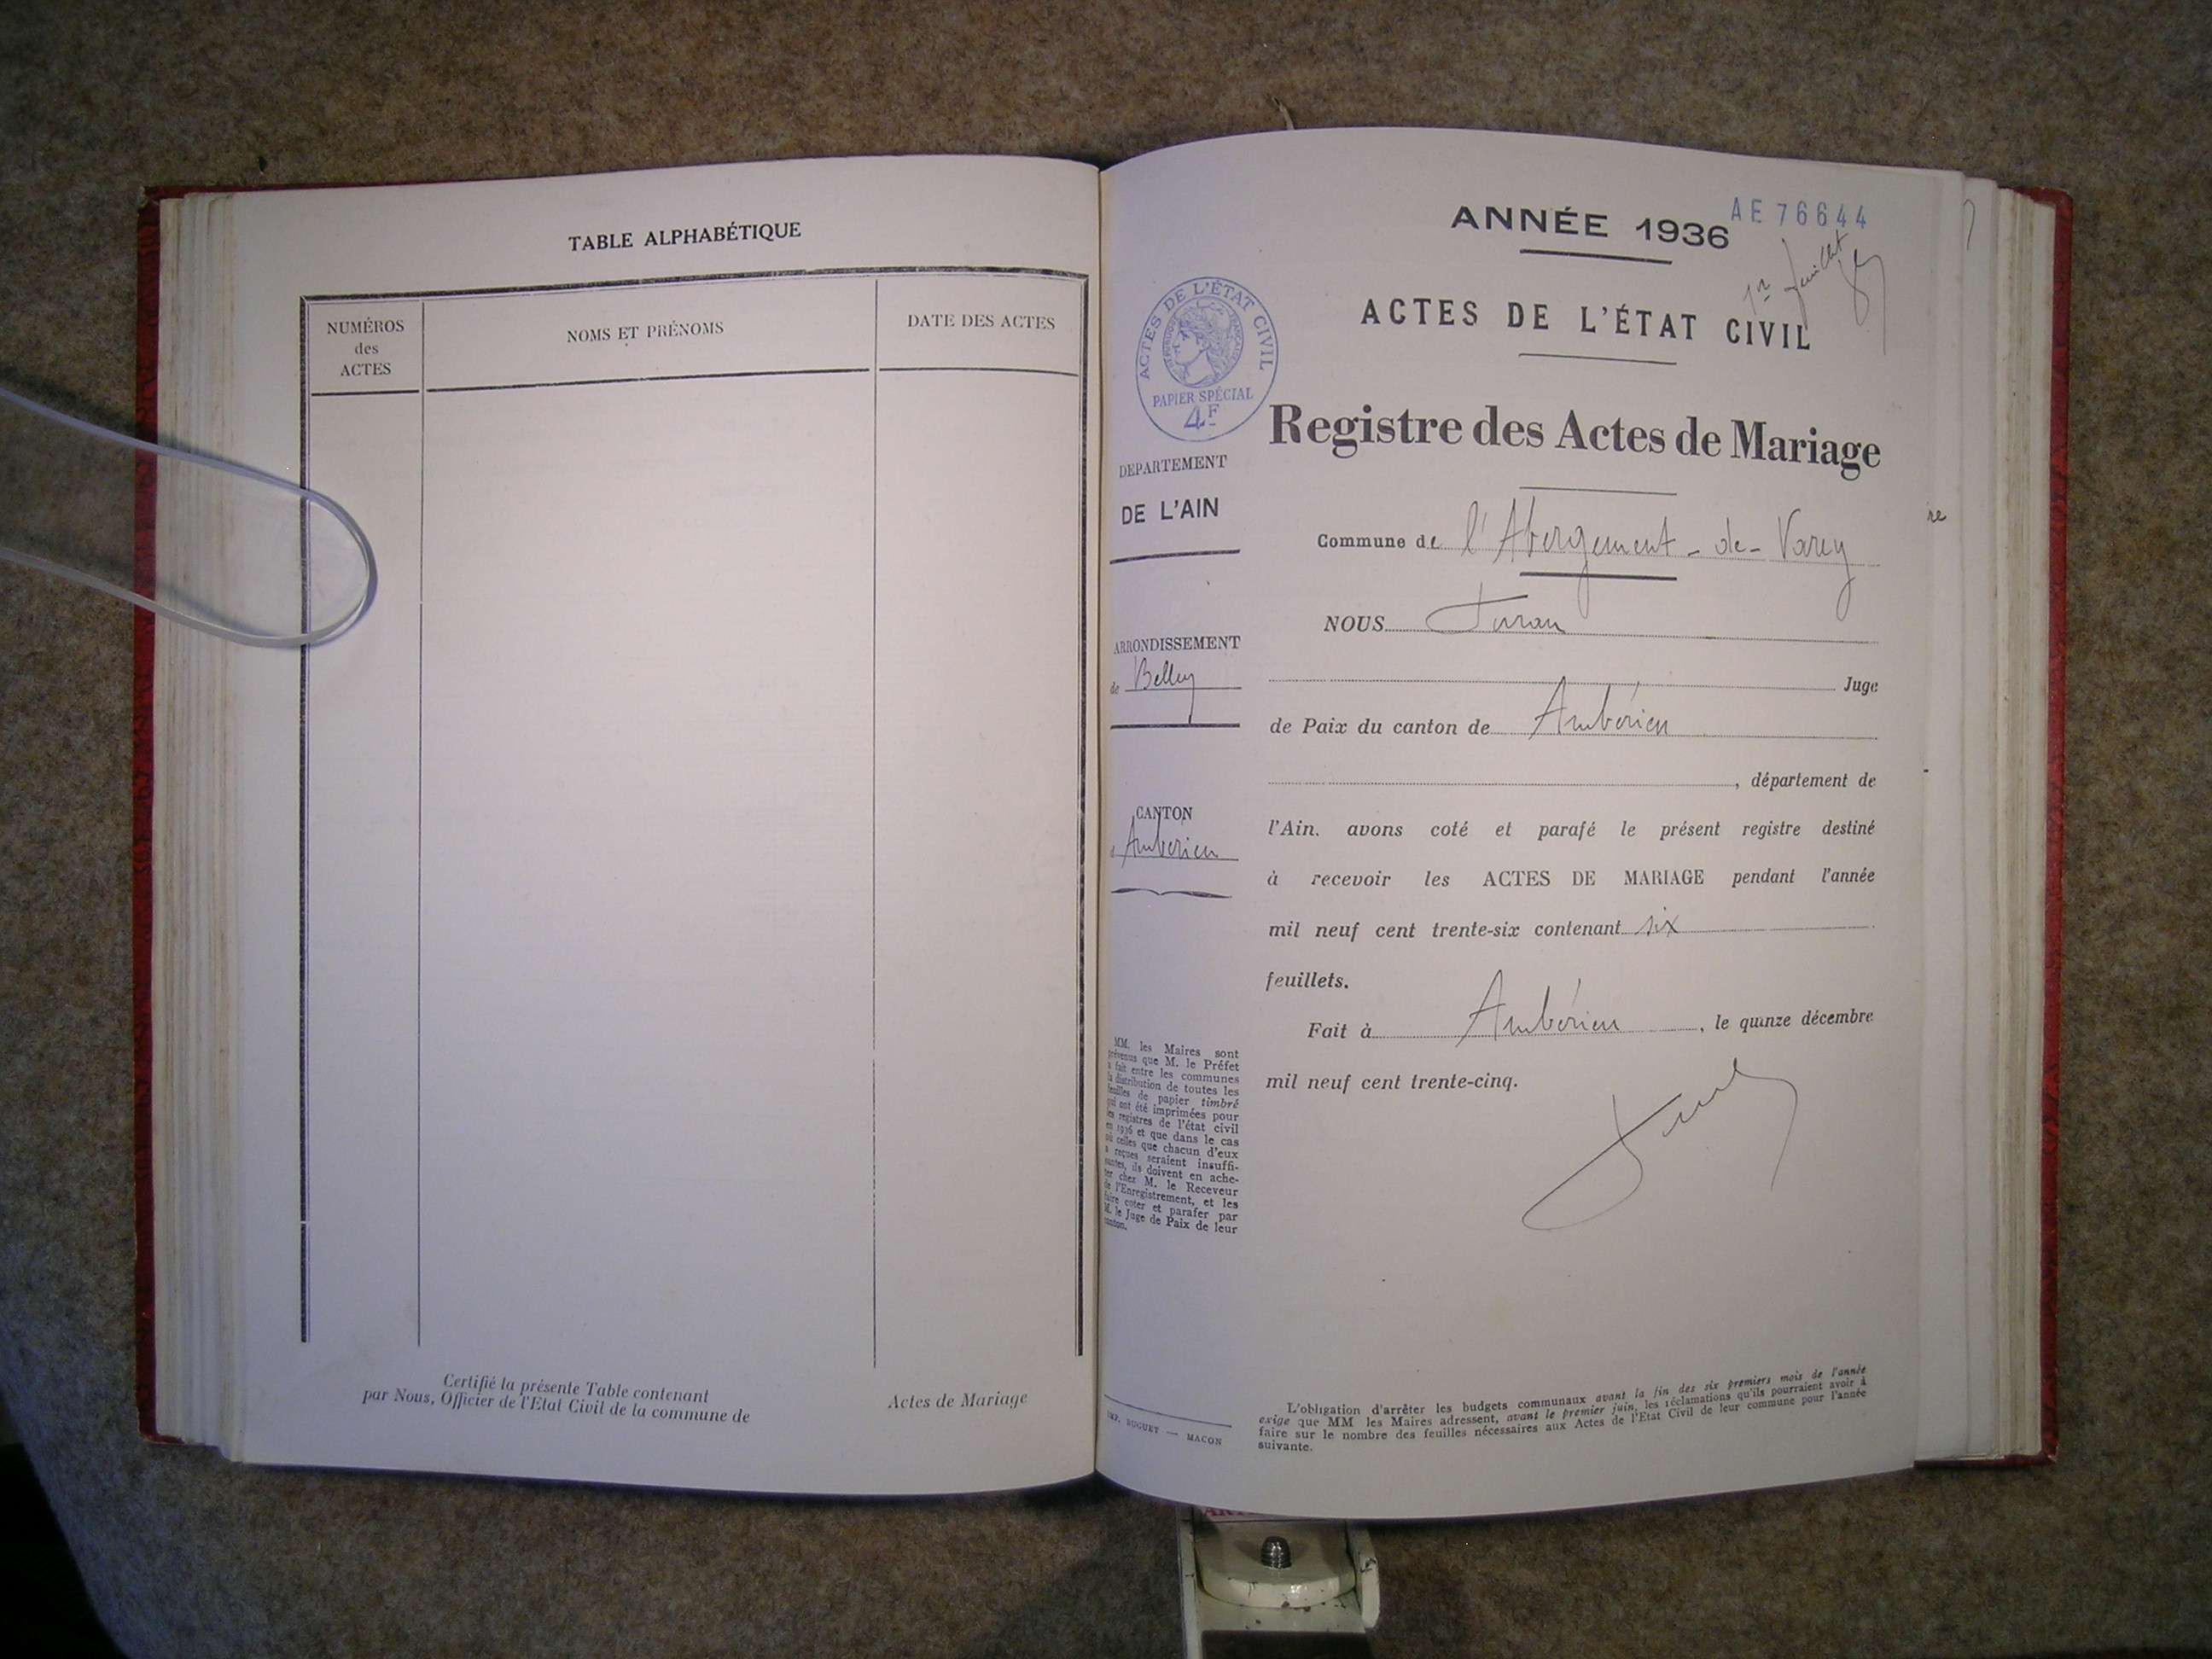 TABLE ALPHABÉTIQUE
NUMÉROS
des
ACTES
NOMS ET PRÉNOMS
DATE DES ACTES
Certifié la présente Table contenant
par Nous, Officier de l'Etat Civil de la commune de
Actes de Mariage
ANNÉE 1936
AE 76644
1er feuillet
ACTES DE L'ÉTAT CIVIL
ACTES DE L'ÉTAT CIVIL
RÉPUBLIQUE FRANÇAISE
PAPIER SPÉCIAL
4F
Registre des Actes de Mariage
DEPARTEMENT
DE L'AIN
ARRONDISSEMENT
de Belley
CANTON
d'Ambérieu
MM. les Maires sont
prévenus que M. le Préfet
a fait entre les communes
la distribution de toutes les
feuilles de papier timbré
qui ont été imprimées pour
les registres de l'état civil
en 1936 et que dans le cas
où celles que chacun d'eux
a reçues seraient insuffi-
santes, ils doivent en ache-
ter chez M. le Receveur
de l'Enregistrement, et les
faire coter et parafer par
M. le Juge de Paix de leur
canton.
IMP. BUGUET — MACON
Commune de l'Abergement-de-Varey
NOUS
Juge
de Paix du canton de Ambérieu
, département de
l'Ain. avons coté et parafé le présent registre destiné
à recevoir les ACTES DE MARIAGE pendant l'année
mil neuf cent trente-six contenant six
feuillets.
Fait à Ambérieu, le quinze décembre
mil neuf cent trente-cinq.
L'obligation d'arrêter les budgets communaux avant la fin des six premiers mois de l'année
exige que MM les Maires adressent, avant le premier juin, les réclamations qu'ils pourraient avoir à
faire sur le nombre des feuilles nécessaires aux Actes de l'Etat Civil de leur commune pour l'année
suivante.
re